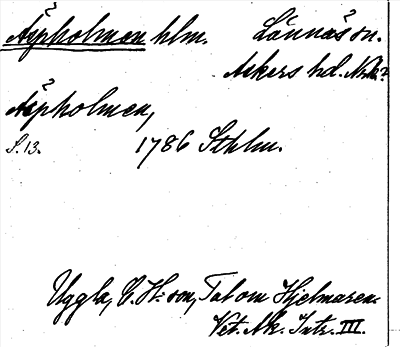 Äspholmen hlm. Lännäs sn.
Askers hd. Nrk.?
Äspholmen,
S. 13. 1786 Sthlm.
Uggla, C. H:son, Tal om Hjelmaren.
Vet. Ak. Intr. III.